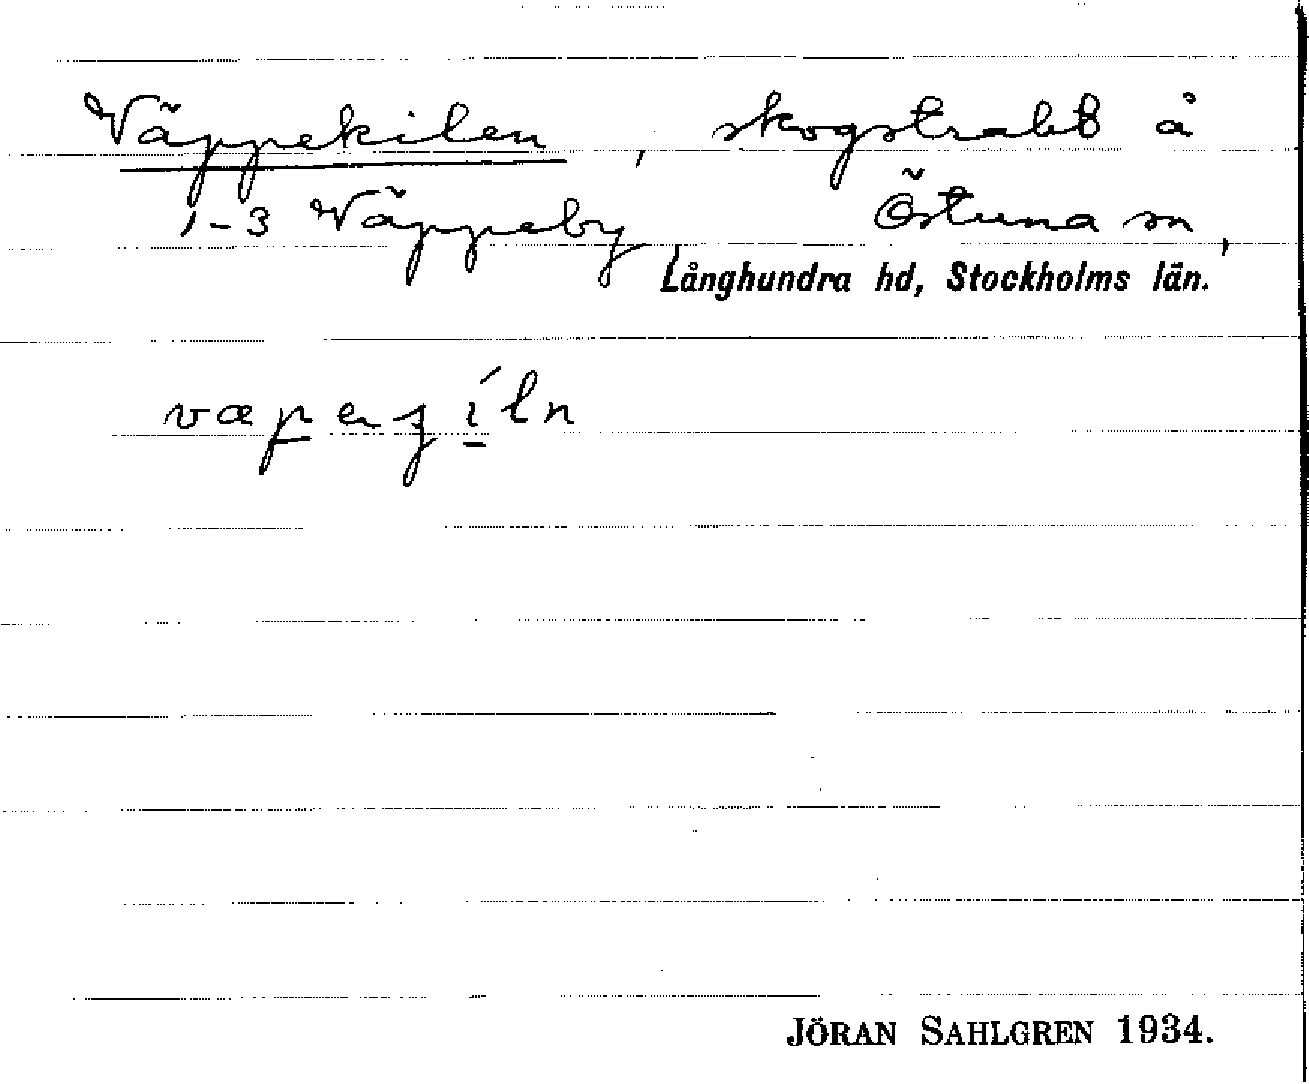 Väppekilen, skogstrakt å
1-3 Väppeby, Östuna sn,
Långhundra hd, Stockholms län.
JÖRAN SAHLGREN 1934.